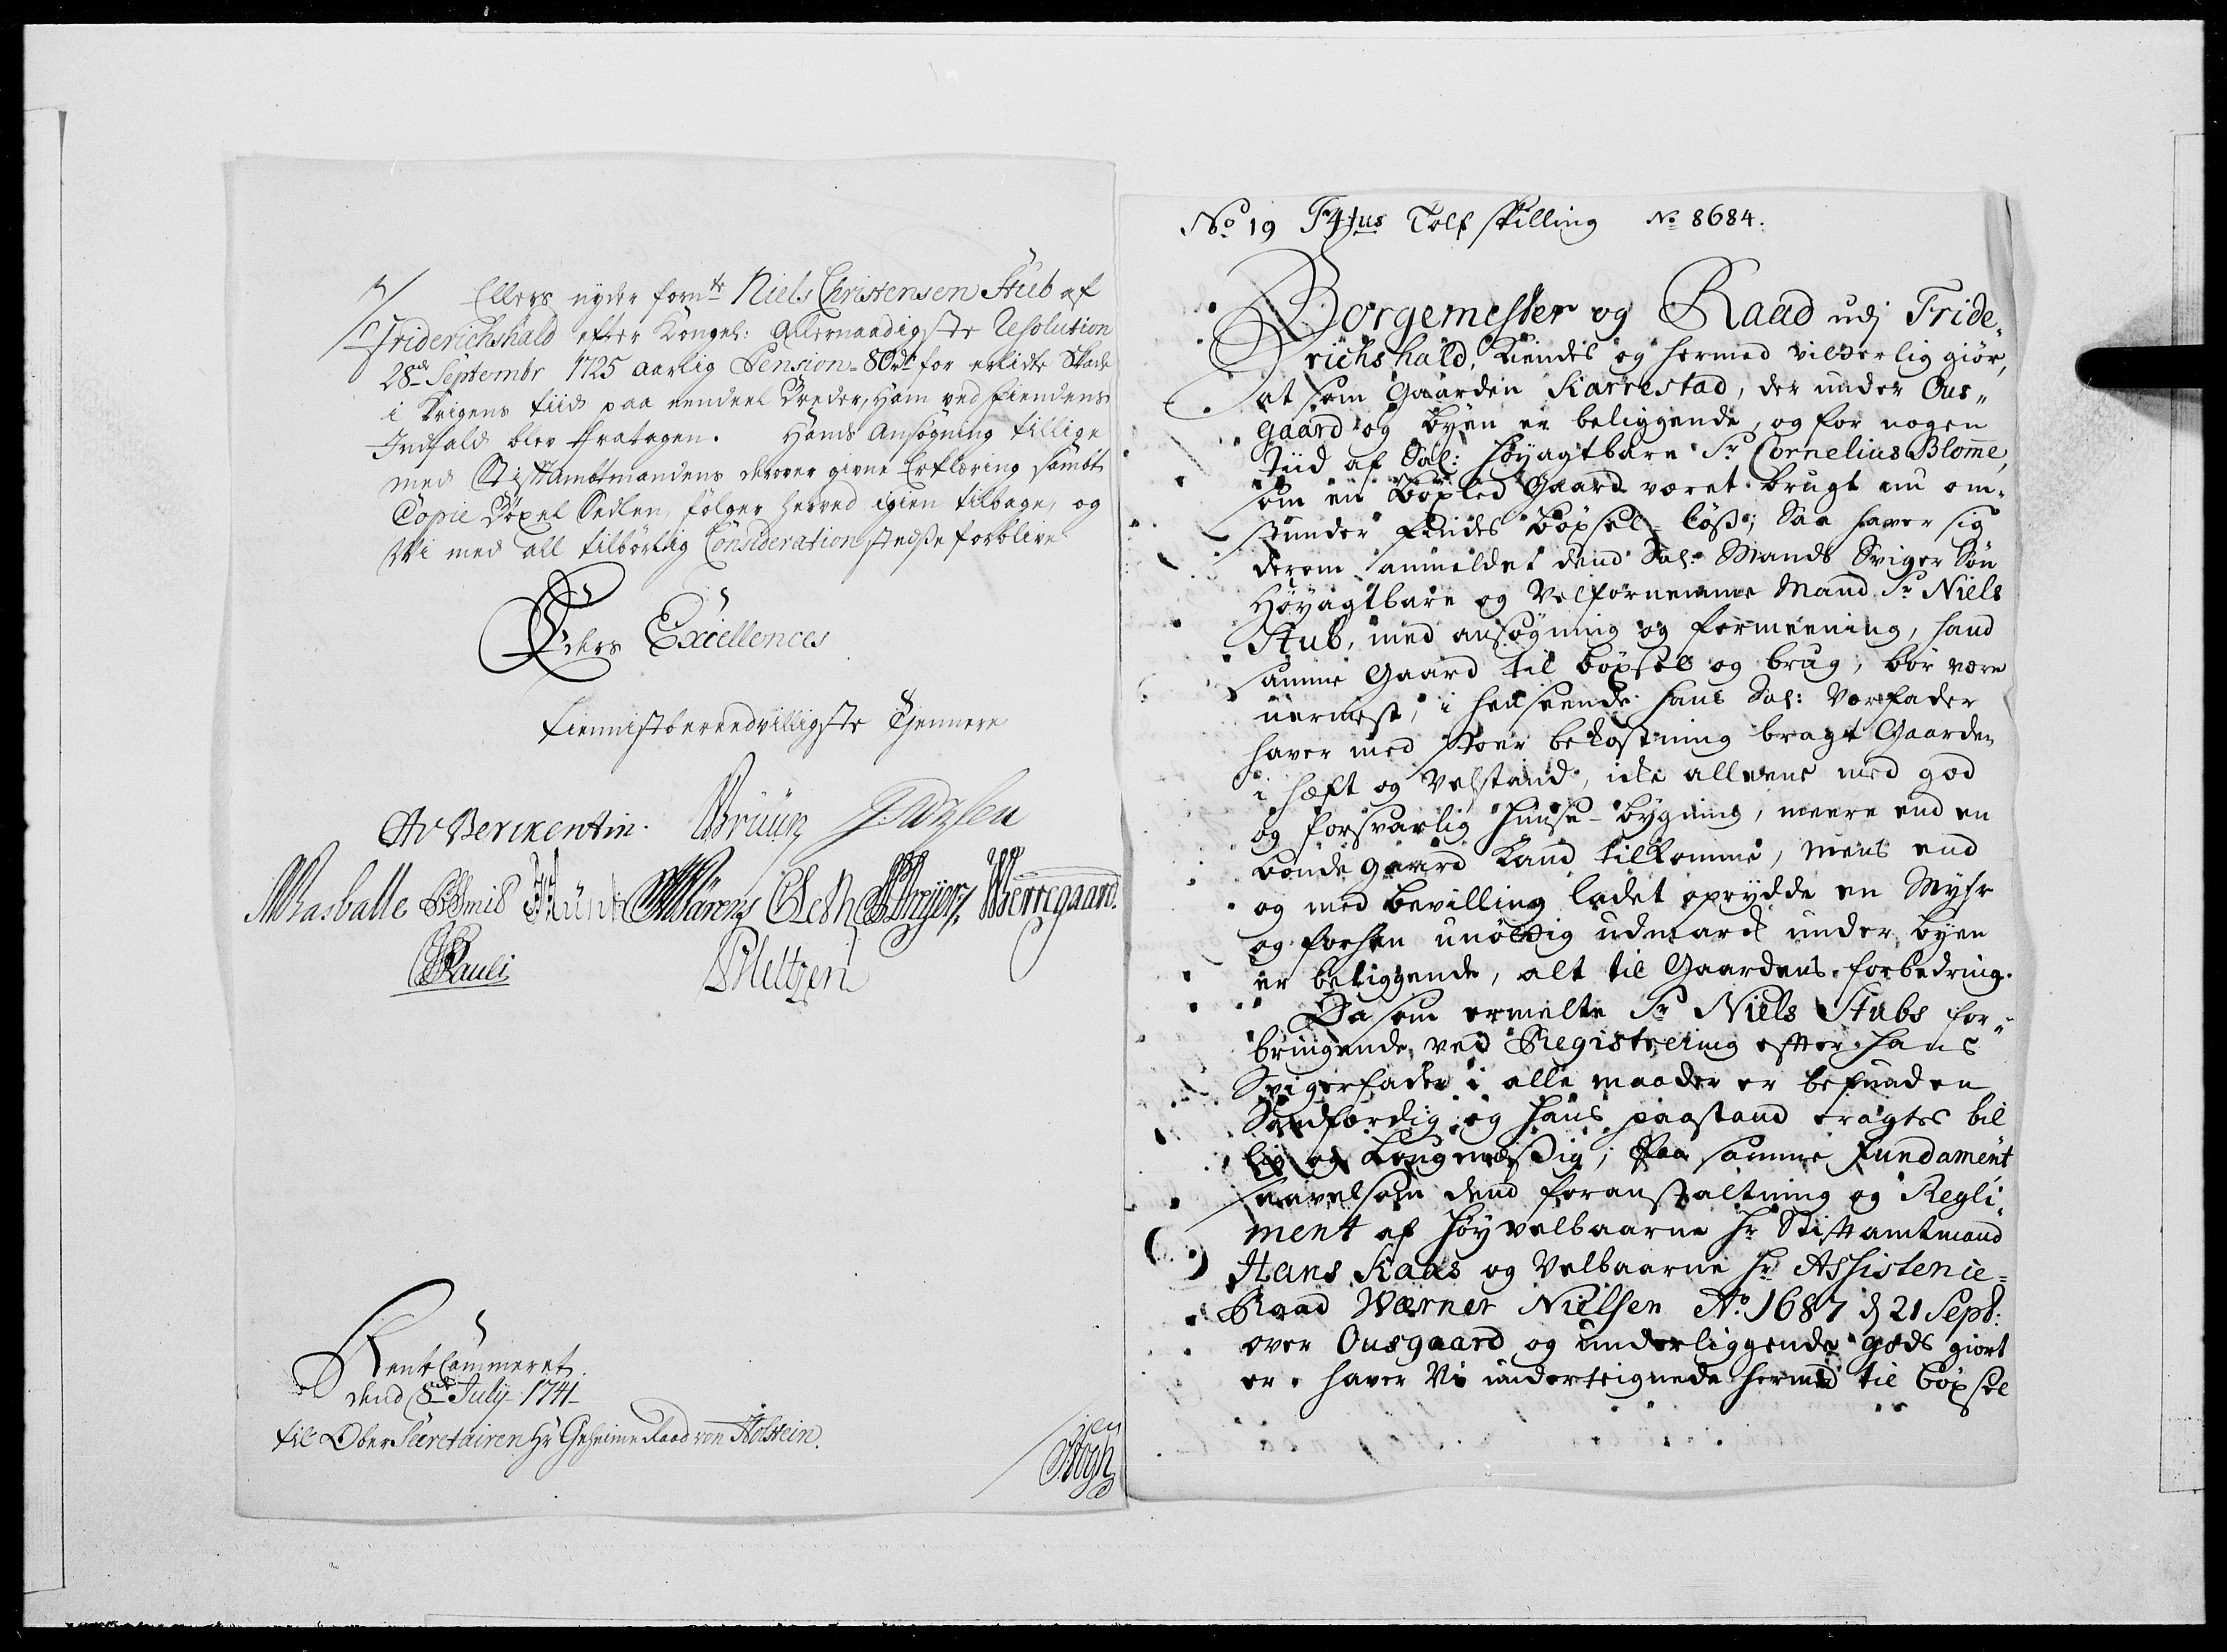 Ellers nyder fornte Niels Christensen Stub af
Friderichshald efter Kongel: Allernaadigste Resolution
28de Septembr 1725 aarlig Pension 80 rdr for erlidte Skade
i Krigens tiid paa eendeel Breder, ham ved Fiendens
Indfald blev fratagen. Hands Ansøgning tillige
med Stiftambtmandens derover givne Erklæring sambt
Copie Böxel Sedlen, følger herved igien tilbage, og
Vi med all tilbörlig Consideration stedse forblive
Eders Excellences
tienistbereedvilligste Tiennere
CAv Berckentin. Bruun
Rasballe Schmid Münt Wärens Leth Dreyer Berregaard
Pauli Meltzen
RentCammeret
dend 8de July 1741
til Ober Secretairen Hr Geheime Raad von Holstein.
No 19 Tolf skilling No 8684.
Borgemester og Raad udj Fride„
richshald, Kiendes og hermed vitterlig giör,
at som Gaarden Karrestad, der under Ous„
gaard og byen er beliggende, og for nogen
tiid af Sal: Höyagtbare Sr Cornelius Blome,
som en böxled Gaard været brugt nu om„
stunder findes böxsel-löss; Saa haver sig
derom anmeldet dend Sal: Mands Sviger Sön
Höyagtbare og Velfornemme Mand Sr Niels
Stub, med ansögning og formeening, hand
samme Gaard til böxsel og brug, bör være
nermest, i henseende hans Sal: Værfader
haver med stoer bekostning bragt Gaarden
i hæft og Velstand, icke alleene med god
og forsvarlig huuse-bygning, meere end en
bondegaard kand tilkomme, mens end
og med bevilling ladet oprydde en Myhr
og forhen unöttig udmarck under byen
er beliggende, alt til Gaardens forbedring.
Da som ermelte Sr Niels Stubs for„
bringende, ved Registrering efter hans
Svigerfader i alle maader er befunden
Sandferdig og hans paastand eragtes bil
lig og Lougmæssig; Paa samme Fundament
saavelsom dend foranstaltning og Regli„
ment af Höyvelbaarne Hr Stiftamtmand
Hans Kaas og Velbaarne Hr Assistence=
Raad Wærner Nielsen Ao. 1687 d 21 Sept:
over Ousgaard og underliggende gods giort
er. haver Vi undertegnede hermed til böxsel